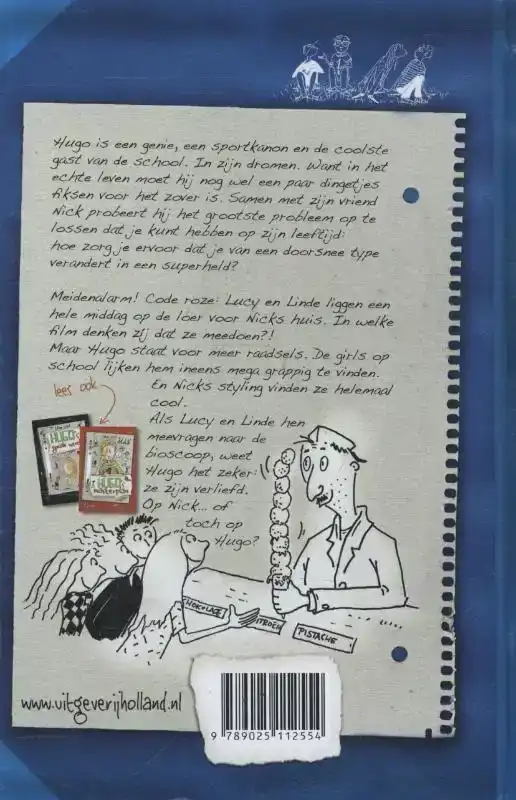 Hugo is een genie, een sportkanon en de coolste
gast van de school. In zijn dromen. Want in het
echte leven moet hij nog wel een paar dingetjes
fiksen voor het zover is. Samen met zijn vriend
Nick probeert hij het grootste probleem op te
lossen dat je kunt hebben op zijn leeftijd:
hoe zorg je ervoor dat je van een doorsnee type
verandert in een superheld?
Meidenalarm! Code roze: Lucy en Linde liggen een
hele middag op de loer voor Nicks huis. In welke
film denken zij dat ze meedoen?!
Maar Hugo staat voor meer raadsels. De girls op
school lijken hem ineens mega grappig te vinden.
En Nicks styling vinden ze helemaal
cool.
Als Lucy en Linde hen
meevragen naar de
bioscoop, weet
Hugo het zeker:
ze zijn verliefd.
Op Nick... of
toch op
Hugo?
lees ook
HUGO's
HUGO's
CHOKOLADE
CITROEN
PISTACHE
www.uitgeverijholland.nl
9 789025 112554